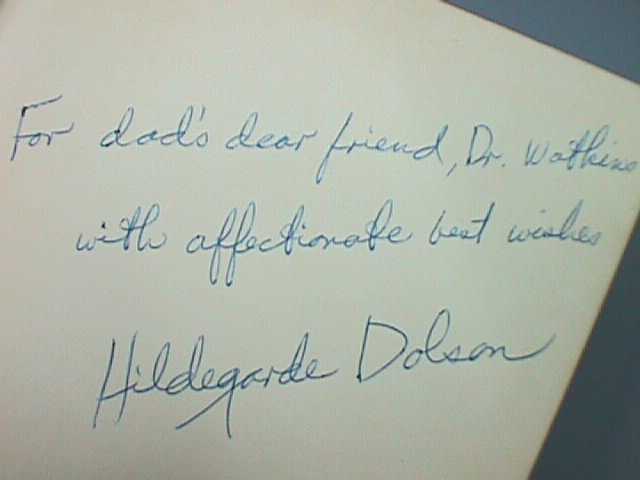 For dad's dear friend, Dr. Watkins
with affectionate best wishes
Hildegarde Dolson